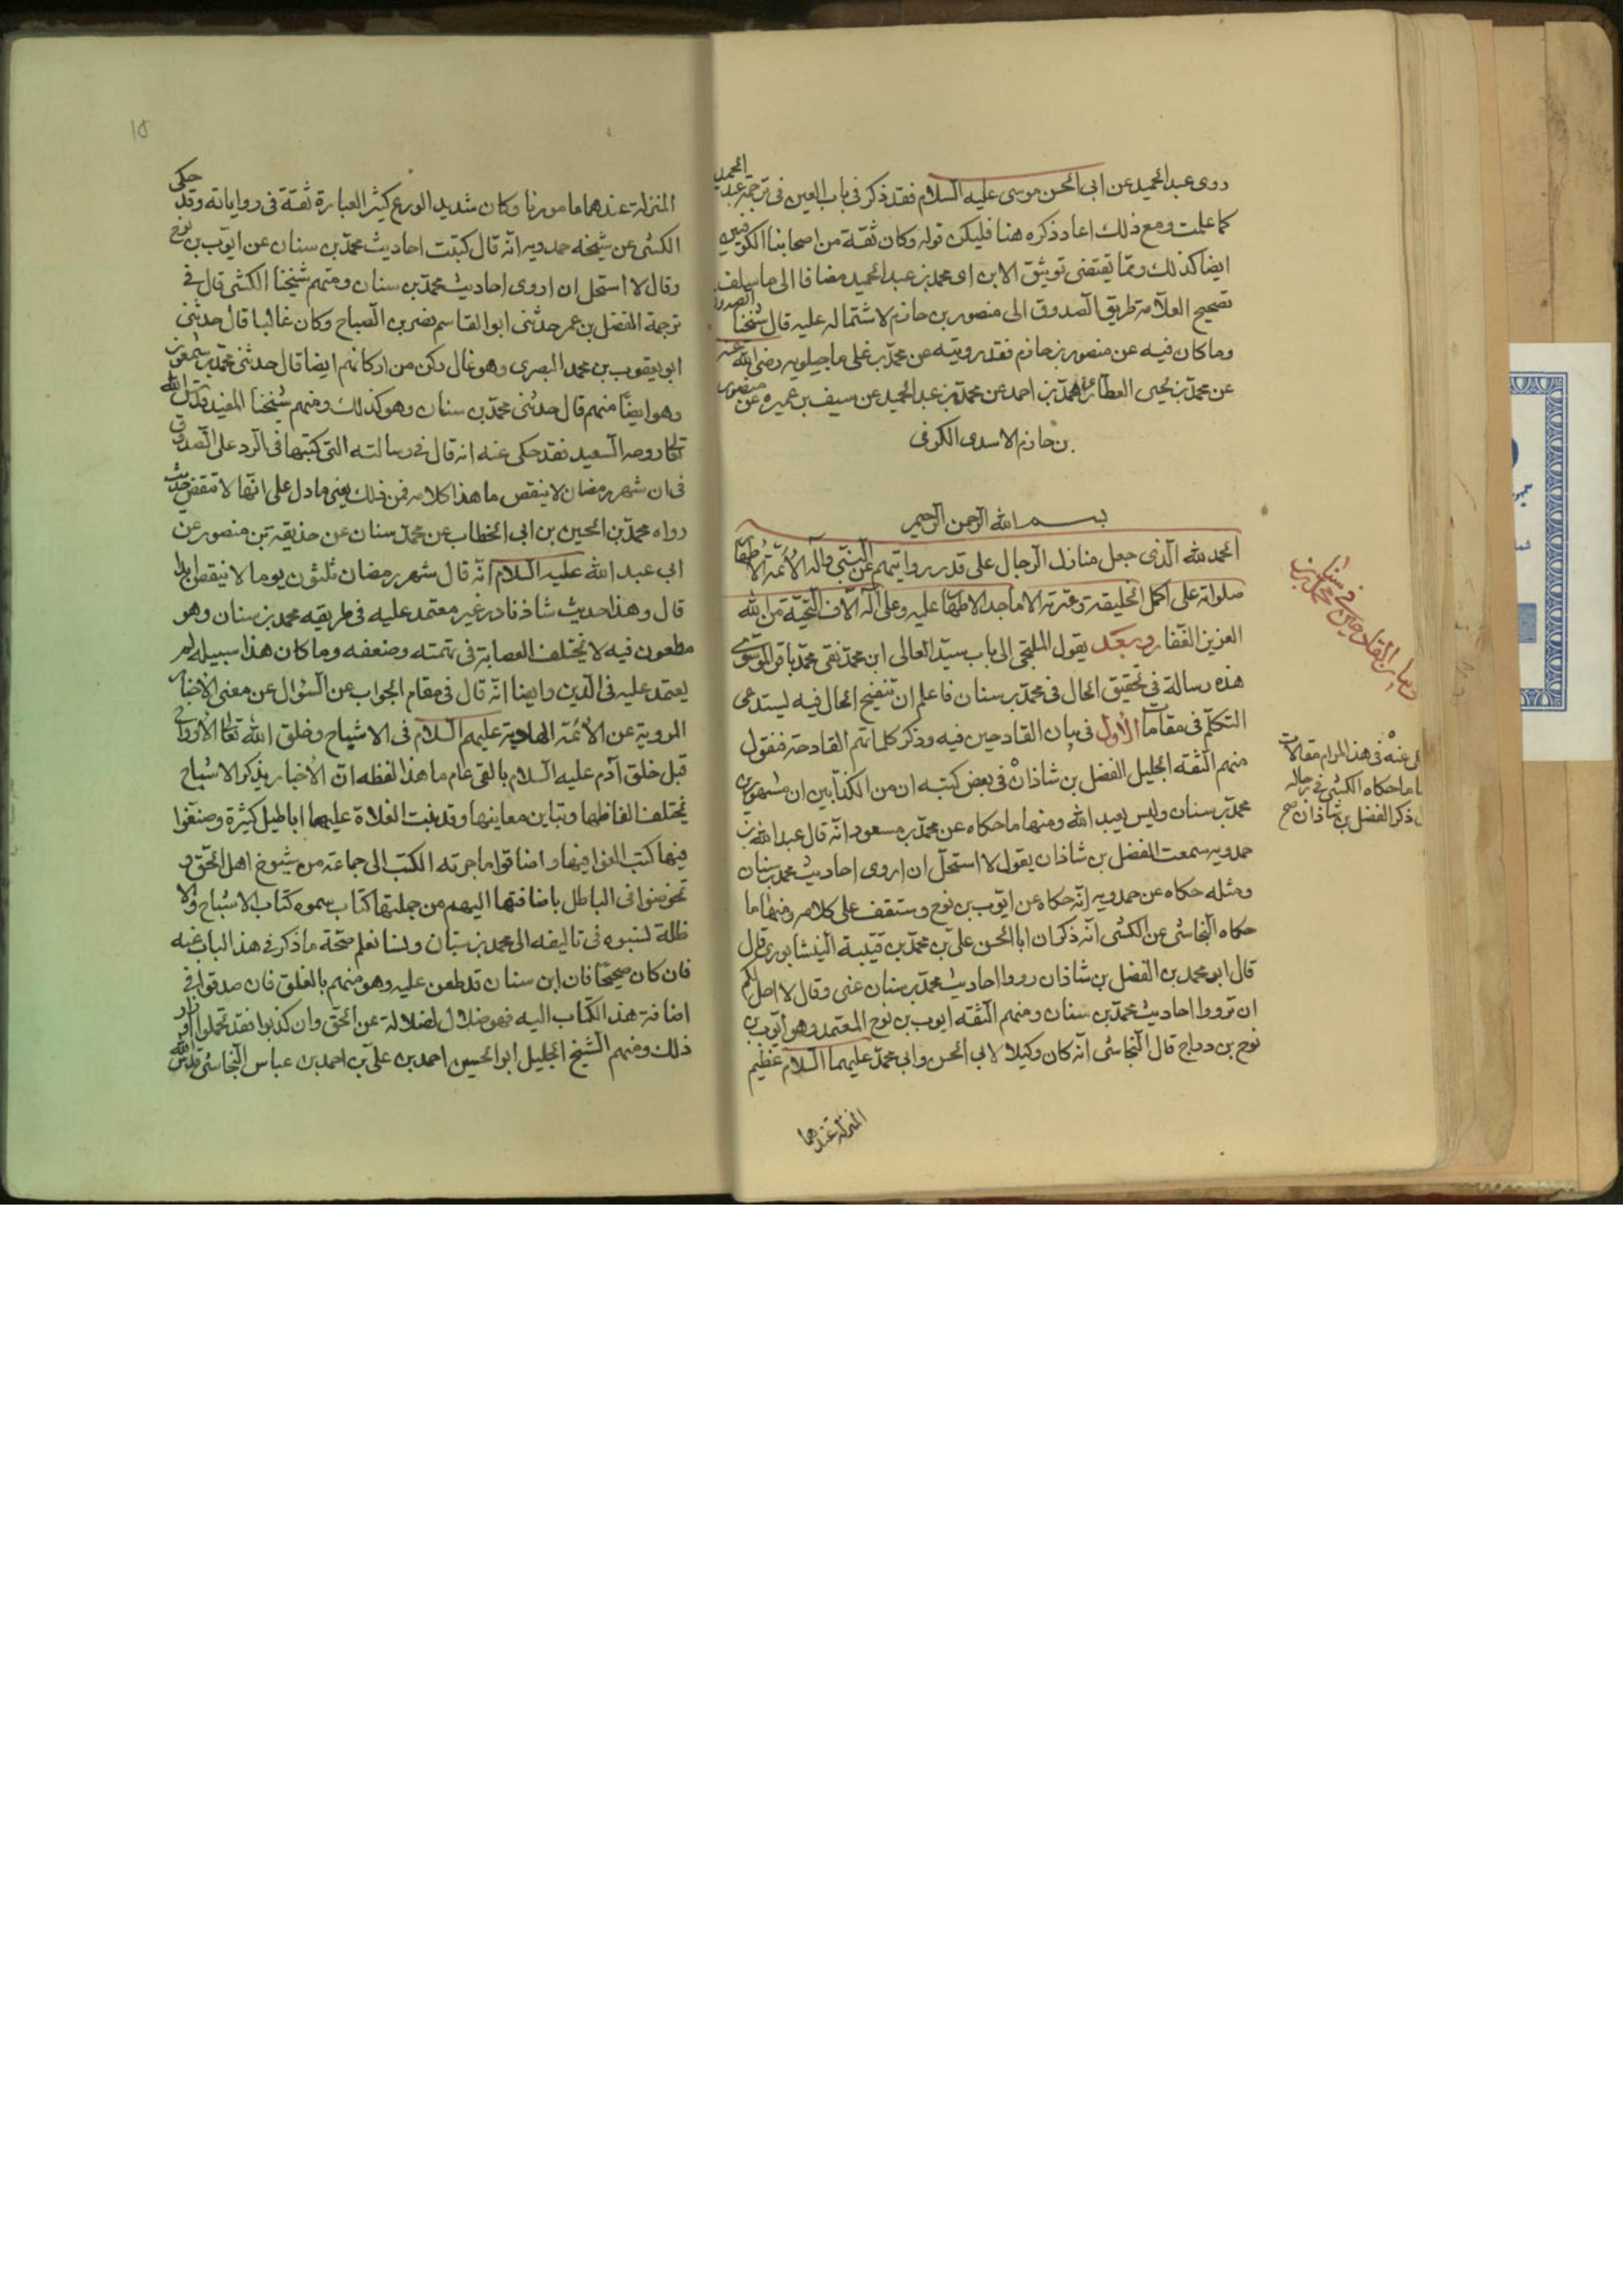 روى عبد الحميد عن ابى الحسن موسى عليه السلام فقد ذكر فى باب العين فى ترجمة عبد الحميد
كما علمت ومع ذلك اعاد ذكره هنا فليكن قوله وكان ثقة من اصحابنا الكوفيين
ايضا كذلك ومما يقتضى توثيق الابن اى محمد بن عبد الحميد مضافا الى ما سلف
تصحيح العلامة طريق الصدوق الى منصور بن حازم لاشتماله عليه قال شيخنا الصدوق
وما كان فيه عن منصور بن حازم فقد رويته عن محمد بن على ماجيلويه رضى الله عنه
عن محمد بن يحيى العطار عن محمد بن احمد عن محمد بن عبد الحميد عن سيف بن عميره عن منصور
بن حازم الاسدى الكوفى
بسم الله الرحمن الرحيم
الحمد لله الذى جعل منازل الرجال على قدر رواياتهم عن النبى وآله الأئمة الاطهار
صلواته على اكمل الخليقة وعترته الاماجد الاطهار عليه وعلى آله آلاف التحية من الله
العزيز الغفار وبعد يقول الملتجى الى باب سيد العالى ابن محمد نقى محمد باقر الموسوى
هذه رسالة فى تحقيق الحال فى محمد بن سنان فاعلم ان تنقيح الحال فيه يستدعى
التكلم فى مقامات الأول فى بيان القادحين فيه وذكر كلماتهم القادحة فنقول
منهم الثقة الجليل الفضل بن شاذان فى بعض كتبه ان من الكذابين المشهورين
محمد بن سنان وليس بعبد الله ومنها ما حكاه عن محمد بن مسعود انه قال عبد الله بن
حمدويه سمعت الفضل بن شاذان يقول لا استحل ان اروى احاديث محمد بن سنان
ومثله حكاه عن حمدويه انه حكاه عن ايوب بن نوح وستقف على كلامه ومنها ما
حكاه النجاشى عن الكشى انه ذكر ان ابا الحسن على بن محمد بن قتيبة النيشابورى قال
قال ابو محمد بن الفضل بن شاذان رووا احاديث محمد بن سنان عنى وقال لا احل لكم
ان ترووا احاديث محمد بن سنان ومنهم الثقه ايوب بن نوح المعتمد وهو ايوب بن
نوح بن دراج قال النجاشى انه كان وكيلا لابى الحسن وابى محمد عليهما السلام عظيم
المنزلة عندهما
فى هذا المرام مقالات
ما حكاه الكشى فى رجاله
ذكر الفضل بن شاذان صح
المنزلة عندهما مامونا وكان شديد الورع كثير العبارة ثقة فى رواياته وقد حكى
الكشى عن شيخه حمدويه انه قال كتبت احاديث محمد بن سنان عن ايوب بن نوح
وقال لا استحل ان اروى احاديث محمد بن سنان ومنهم شيخنا الكشى قال فى
ترجمة المفضل بن عمر حدثنى ابو القاسم نصر بن الصباح وكان غاليا قال حدثنى
ابو يعقوب بن محمد البصرى وهو غال ركن من اركانهم ايضا قال حدثنى محمد بن شمعون
وهو ايضا منهم قال حدثنى محمد بن سنان وهو كذلك ومنهم شيخنا المفيد قدس الله
تعالى روحه السعيد فقد حكى عنه انه قال فى رسالته التى كتبتها فى الرد على الصدوق
فى ان شهر رمضان لا ينقص ما هذا كلامه فمن ذلك يعنى ما دل على انها لا تنقص حديث
رواه محمد بن الحسين بن ابى الخطاب عن محمد سنان عن حذيقة بن منصور عن
ابى عبد الله عليه السلام انه قال شهر رمضان ثلثون يوما لا ينقص ابدا
قال وهذا حديث شاذ نادر غير معتمد عليه فى طريقه محمد بن سنان وهو
مطعون فيه لا تختلف العصابة فى تهمته وضعفه وما كان هذا سبيله لم
يعتمد عليه فى الدين وايضا انه قال فى مقام الجواب عن السؤال عن معنى الاخبار
المروية عن الائمة الهادية عليهم السلام فى الاشباح وخلق الله تعالى الأرواح
قبل خلق آدم عليه السلام بالفى عام ما هذا لفظه ان الأخبار بذكر الاشباح
تختلف الفاظها وتباين معانيها وقد بنت الغلاة عليها اباطيل كثيرة وصنفوا
فيها كتبا لغوا فيها واضافوا ما حوته الكتب الى جماعة من شيوخ اهل الحق و
تخرصوا فى الباطل باضافتها اليهم من جملتها كتاب سموه كتاب الاشباح والا
ظلة نسبوه فى تاليفه الى محمد بن سنان ولسنا نعلم صحة ما ذكر فى هذا الباب عنه
فان كان صحيحا فان ابن سنان قد طعن عليه وهو متهم بالغلو فان صدقوا فى
اضافة هذا الكتاب اليه فهو ضلال لضلالة عن الحق وان كذبوا فقد تحملوا اوزار
ذلك ومنهم الشيخ الجليل ابو الحسين احمد بن على بن احمد بن عباس النجاشى